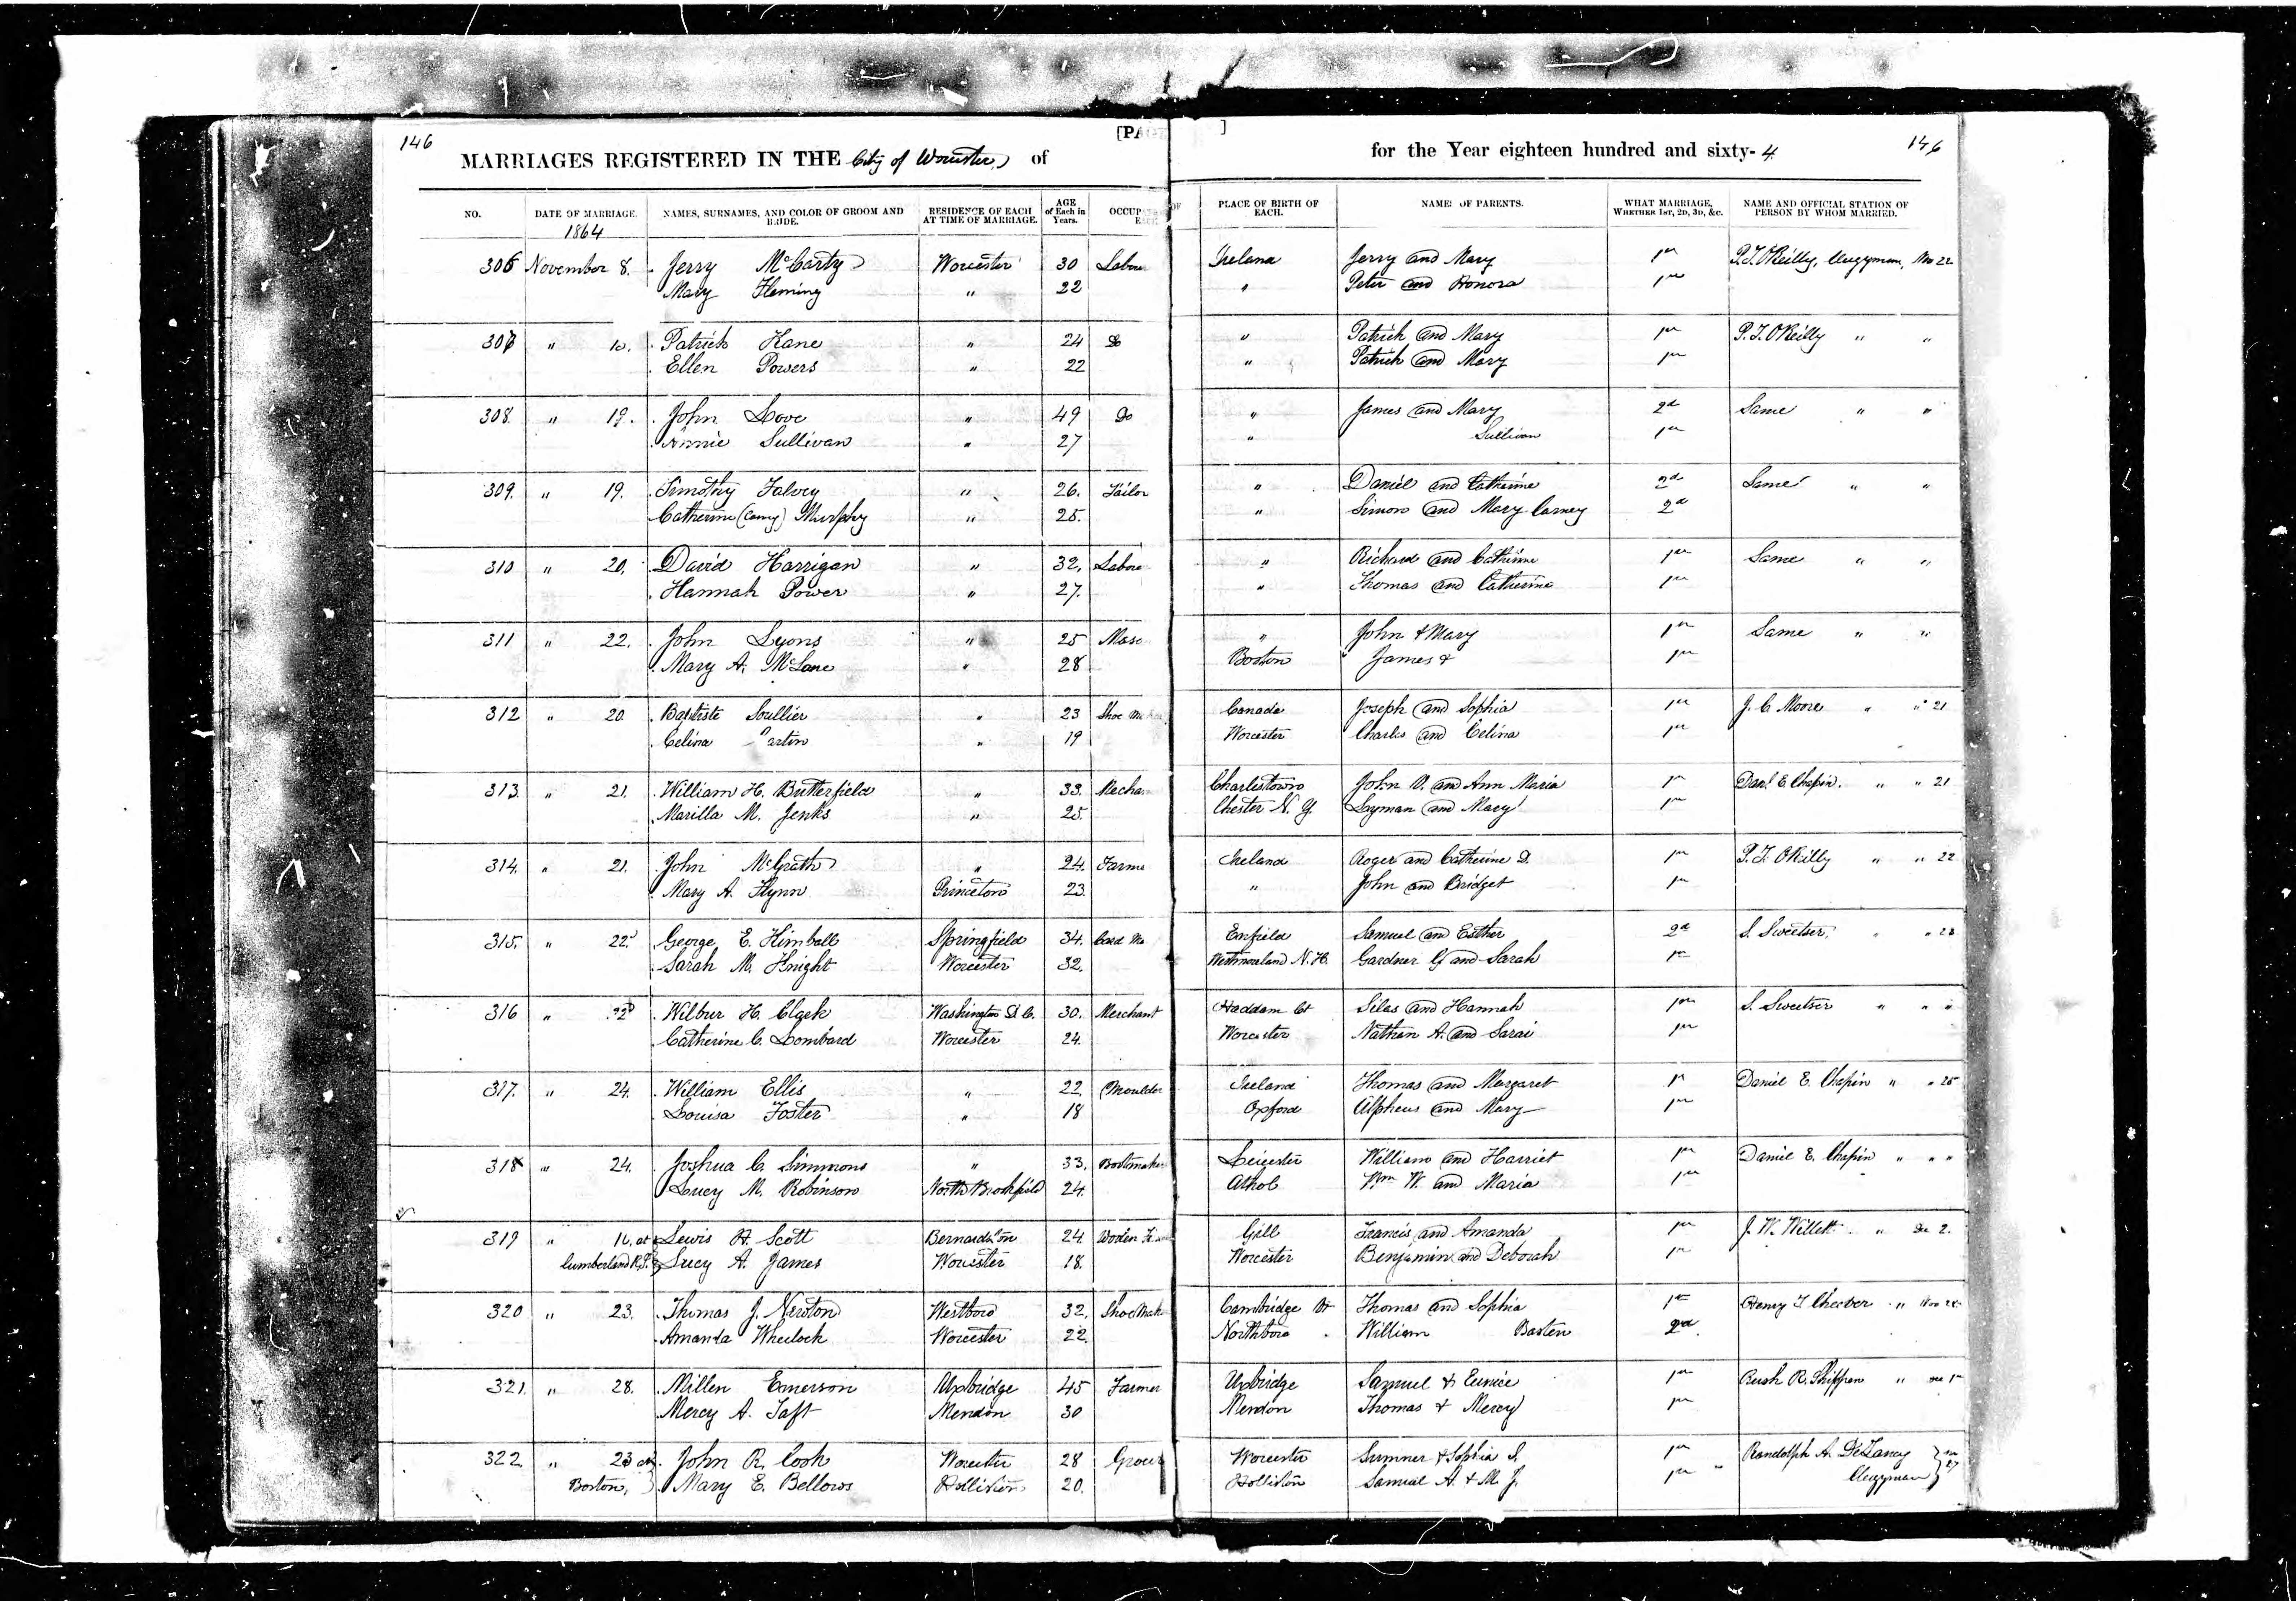 146
[PA
]
146
MARRIAGES REGISTERED IN THE City of Worcester, of
for the Year eighteen hundred and sixty-4
NO. DATE OF MARRIAGE. NAMES, SURNAMES, AND COLOR OF GROOM AND BRIDE. RESIDENCE OF EACH AT TIME OF MARRIAGE. AGE of Each in Years. OCCUP OF PLACE OF BIRTH OF EACH. NAMES OF PARENTS. WHAT MARRIAGE, WHETHER 1ST, 2D, 3D, &C. NAME AND OFFICIAL STATION OF PERSON BY WHOM MARRIED.
1864
306 November 8. Jerry McCarty Worcester 30 Labore Ireland Jerry and Mary 1st P.T. O'Reilly, Clergyman, Nov 22
Mary Fleming " 22 " Peter and Honora 1st
307 " 10. Patrick Kane " 24 Do " Patrick and Mary 1st P.T. O'Reilly " "
Ellen Powers " 22 " Patrick and Mary 1st
308. " 19. John Love " 49 Do " James and Mary 2d Same " "
Annie Sullivan " 27 " Sullivan 1st
309. " 19. Timothy Falvey " 26. Tailor " Daniel and Catherine 2d Same " "
Catherine (Carney) Murphy " 25. " Simon and Mary Carney 2d
310 " 20. David Harrigan " 32. Labore " Richard and Catherine 1st Same " "
Hannah Power " 27. " Thomas and Catherine 1st
311 " 22. John Lyons " 25 Maso " John & Mary 1st Same " "
Mary A. McLane " 28 Boston James & 1st
312 " 20. Baptiste Soullier " 23 Shoe Ma Canada Joseph and Sophia 1st J. C. Moore " " 21
Celina Martin " 19 Worcester Charles and Celina 1st
313. " 21. William H. Butterfield " 33. Mecha Charlestown John D. and Ann Maria 1st Danl. E. Chapin. " " 21
Marilla M. Jenks " 25. Chester N. Y. Lyman and Mary 1st
314. " 21. John McGrath " 24. Farme Ireland Roger and Catherine D. 1st P. T. O'Reilly " " 22
Mary A. Flynn Princeton 23. " John and Bridget 1st
315. " 22d George E. Kimball Springfield 34. Card Ma Enfield Samuel and Esther 2d S. Sweetser, " " 23
Sarah M. Knight Worcester 32. Westmoreland N. H. Gardner G. and Sarah 1st
316 " 22d Wilbur H. Clark Washington D.C. 30. Merchant Haddam Ct Silas and Hannah 1st S. Sweetser " " "
Catherine C. Lombard Worcester 24. Worcester Nathan A. and Sarai 1st
317. " 24. William Ellis " 22. Moulder Ireland Thomas and Margaret 1st Daniel E. Chapin " " 25
Louisa Foster " 18 Oxford Alpheus and Mary 1st
318 " 24. Joshua C. Simmons " 33. Bootmaker Leicester William and Harriet 1st Daniel E. Chapin " " "
Lucy M. Robinson North Brookfield 24. Athol Wm W. and Maria 1st
319 " 16. at Lewis H. Scott Bernardston 24 Gill Francis and Amanda 1st J. W. Willett. " Dec 2.
Cumberland R.I. Lucy A. James Worcester 18. Worcester Benjamin and Deborah 1st
320 " 23. Thomas J. Newton Westboro 32. Shoe Mak Cambridge Vt Thomas and Sophia 1st Henry T. Cheever " Nov 25
Amanda Wheelock Worcester 22. Northboro William Barten 2d
321. " 28. Millen Emerson Uxbridge 45 Farmer Uxbridge Samuel & Eunice 1st Rush R. Shippen " Dec 1st
Mercy A. Taft Mendon 30 Mendon Thomas & Mercy 1st
322. " 23 at John R. Cook Worcester 28 Grocer Worcester Sumner & Sophia S. 1st Randolph A. DeLancy
Boston, Mary E. Bellows Holliston 20. Holliston Samuel A. & M. J. 1st Clergyman